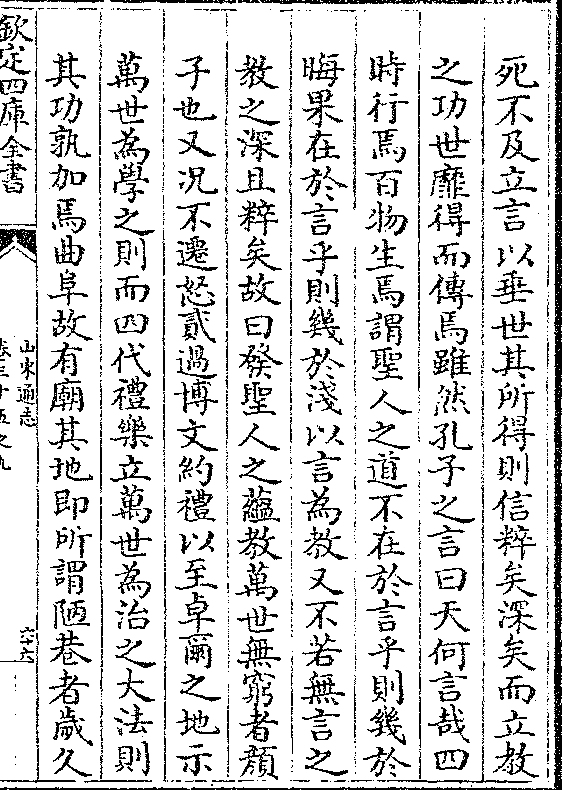 死不及立言以垂世其所得則信粹矣深矣而立教
之功世靡得而傳焉雖然孔子之言曰天何言哉四
時行焉百物生焉謂聖人之道不在於言乎則幾於
晦果在於言乎則幾於淺以言為教又不若無言之
教之深且粹矣故曰發聖人之蘊教萬世無窮者顔
子也又况不遷怒貳過博文約禮以至卓爾之地示
萬世為學之則而四代禮樂立萬世為治之大法則
其功孰加焉曲阜故有廟其地即所謂陋巷者歲久
欽定四庫全書
山東通志
卷三十五之九
六十六